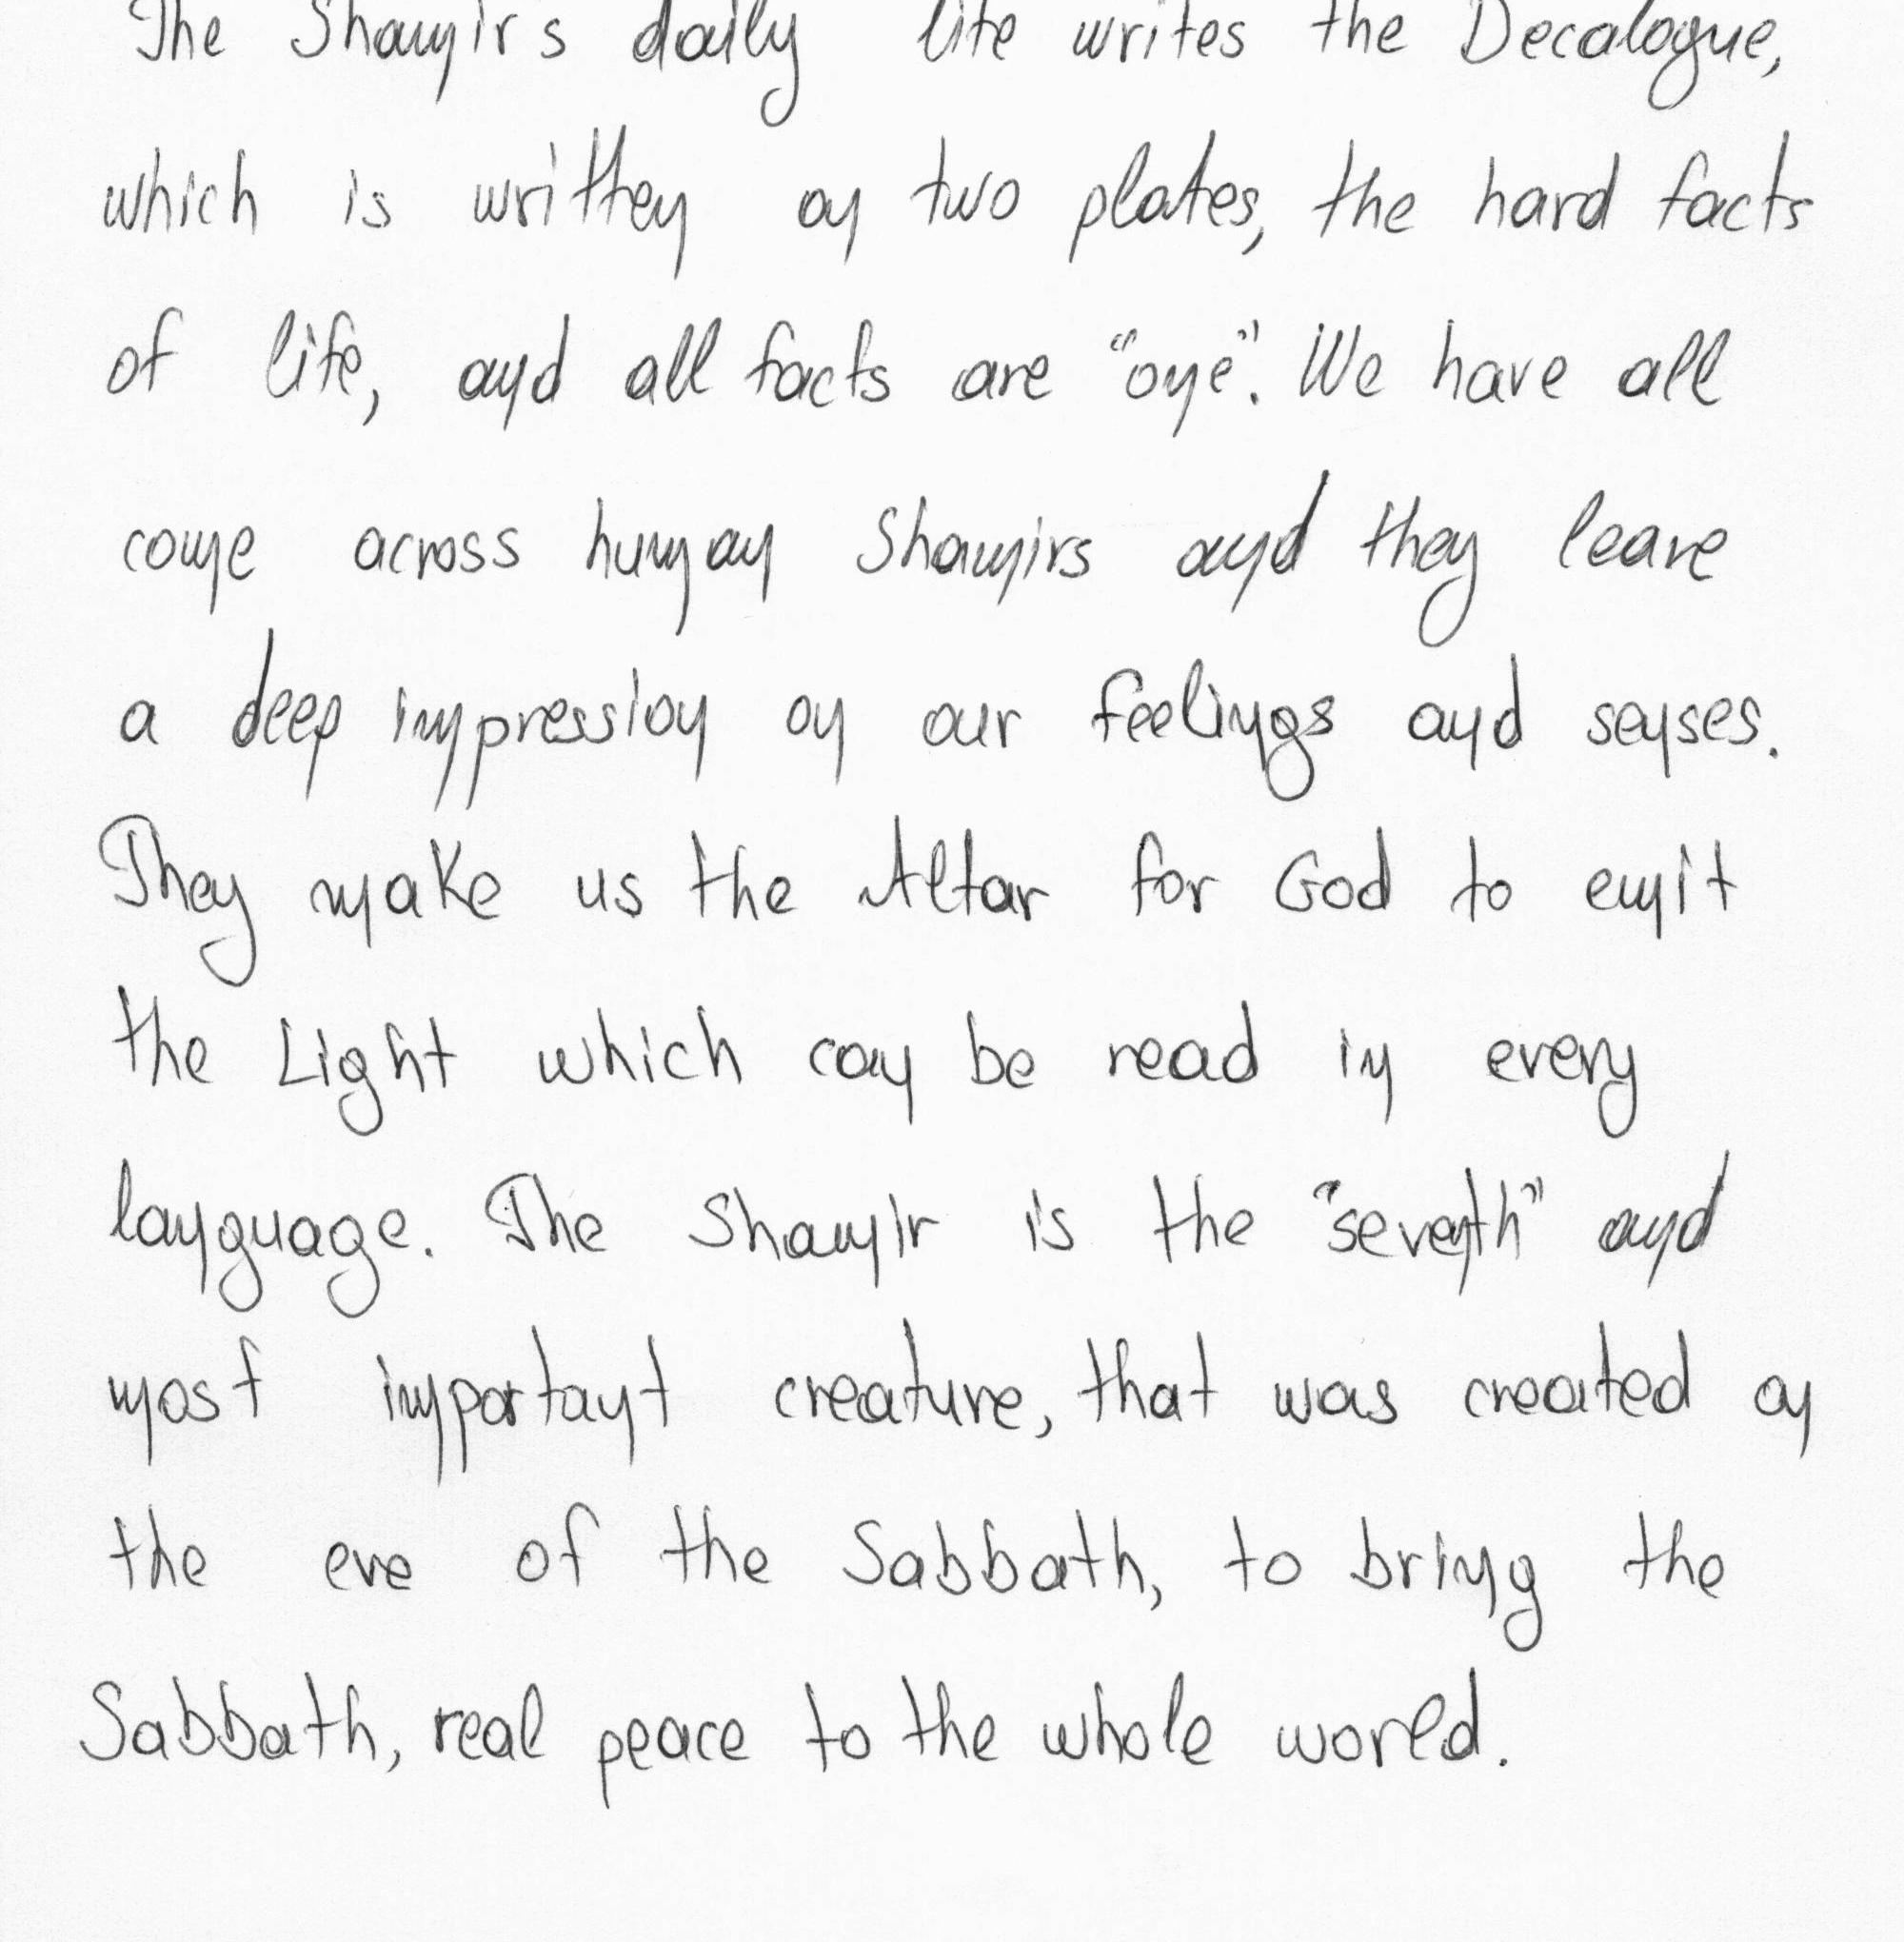 The Shamir's daily life writes the Decalogue,
which is written on two plates, the hard facts
of life, and all facts are "one". We have all
come across human Shamirs and they leave
a deep impression on our feelings and senses.
They make us the Altar for God to emit
the Light which can be read in every
language. The Shamir is the "seventh" and
most important creature, that was created on
the eve of the Sabbath, to bring the
Sabbath, real peace to the whole world.